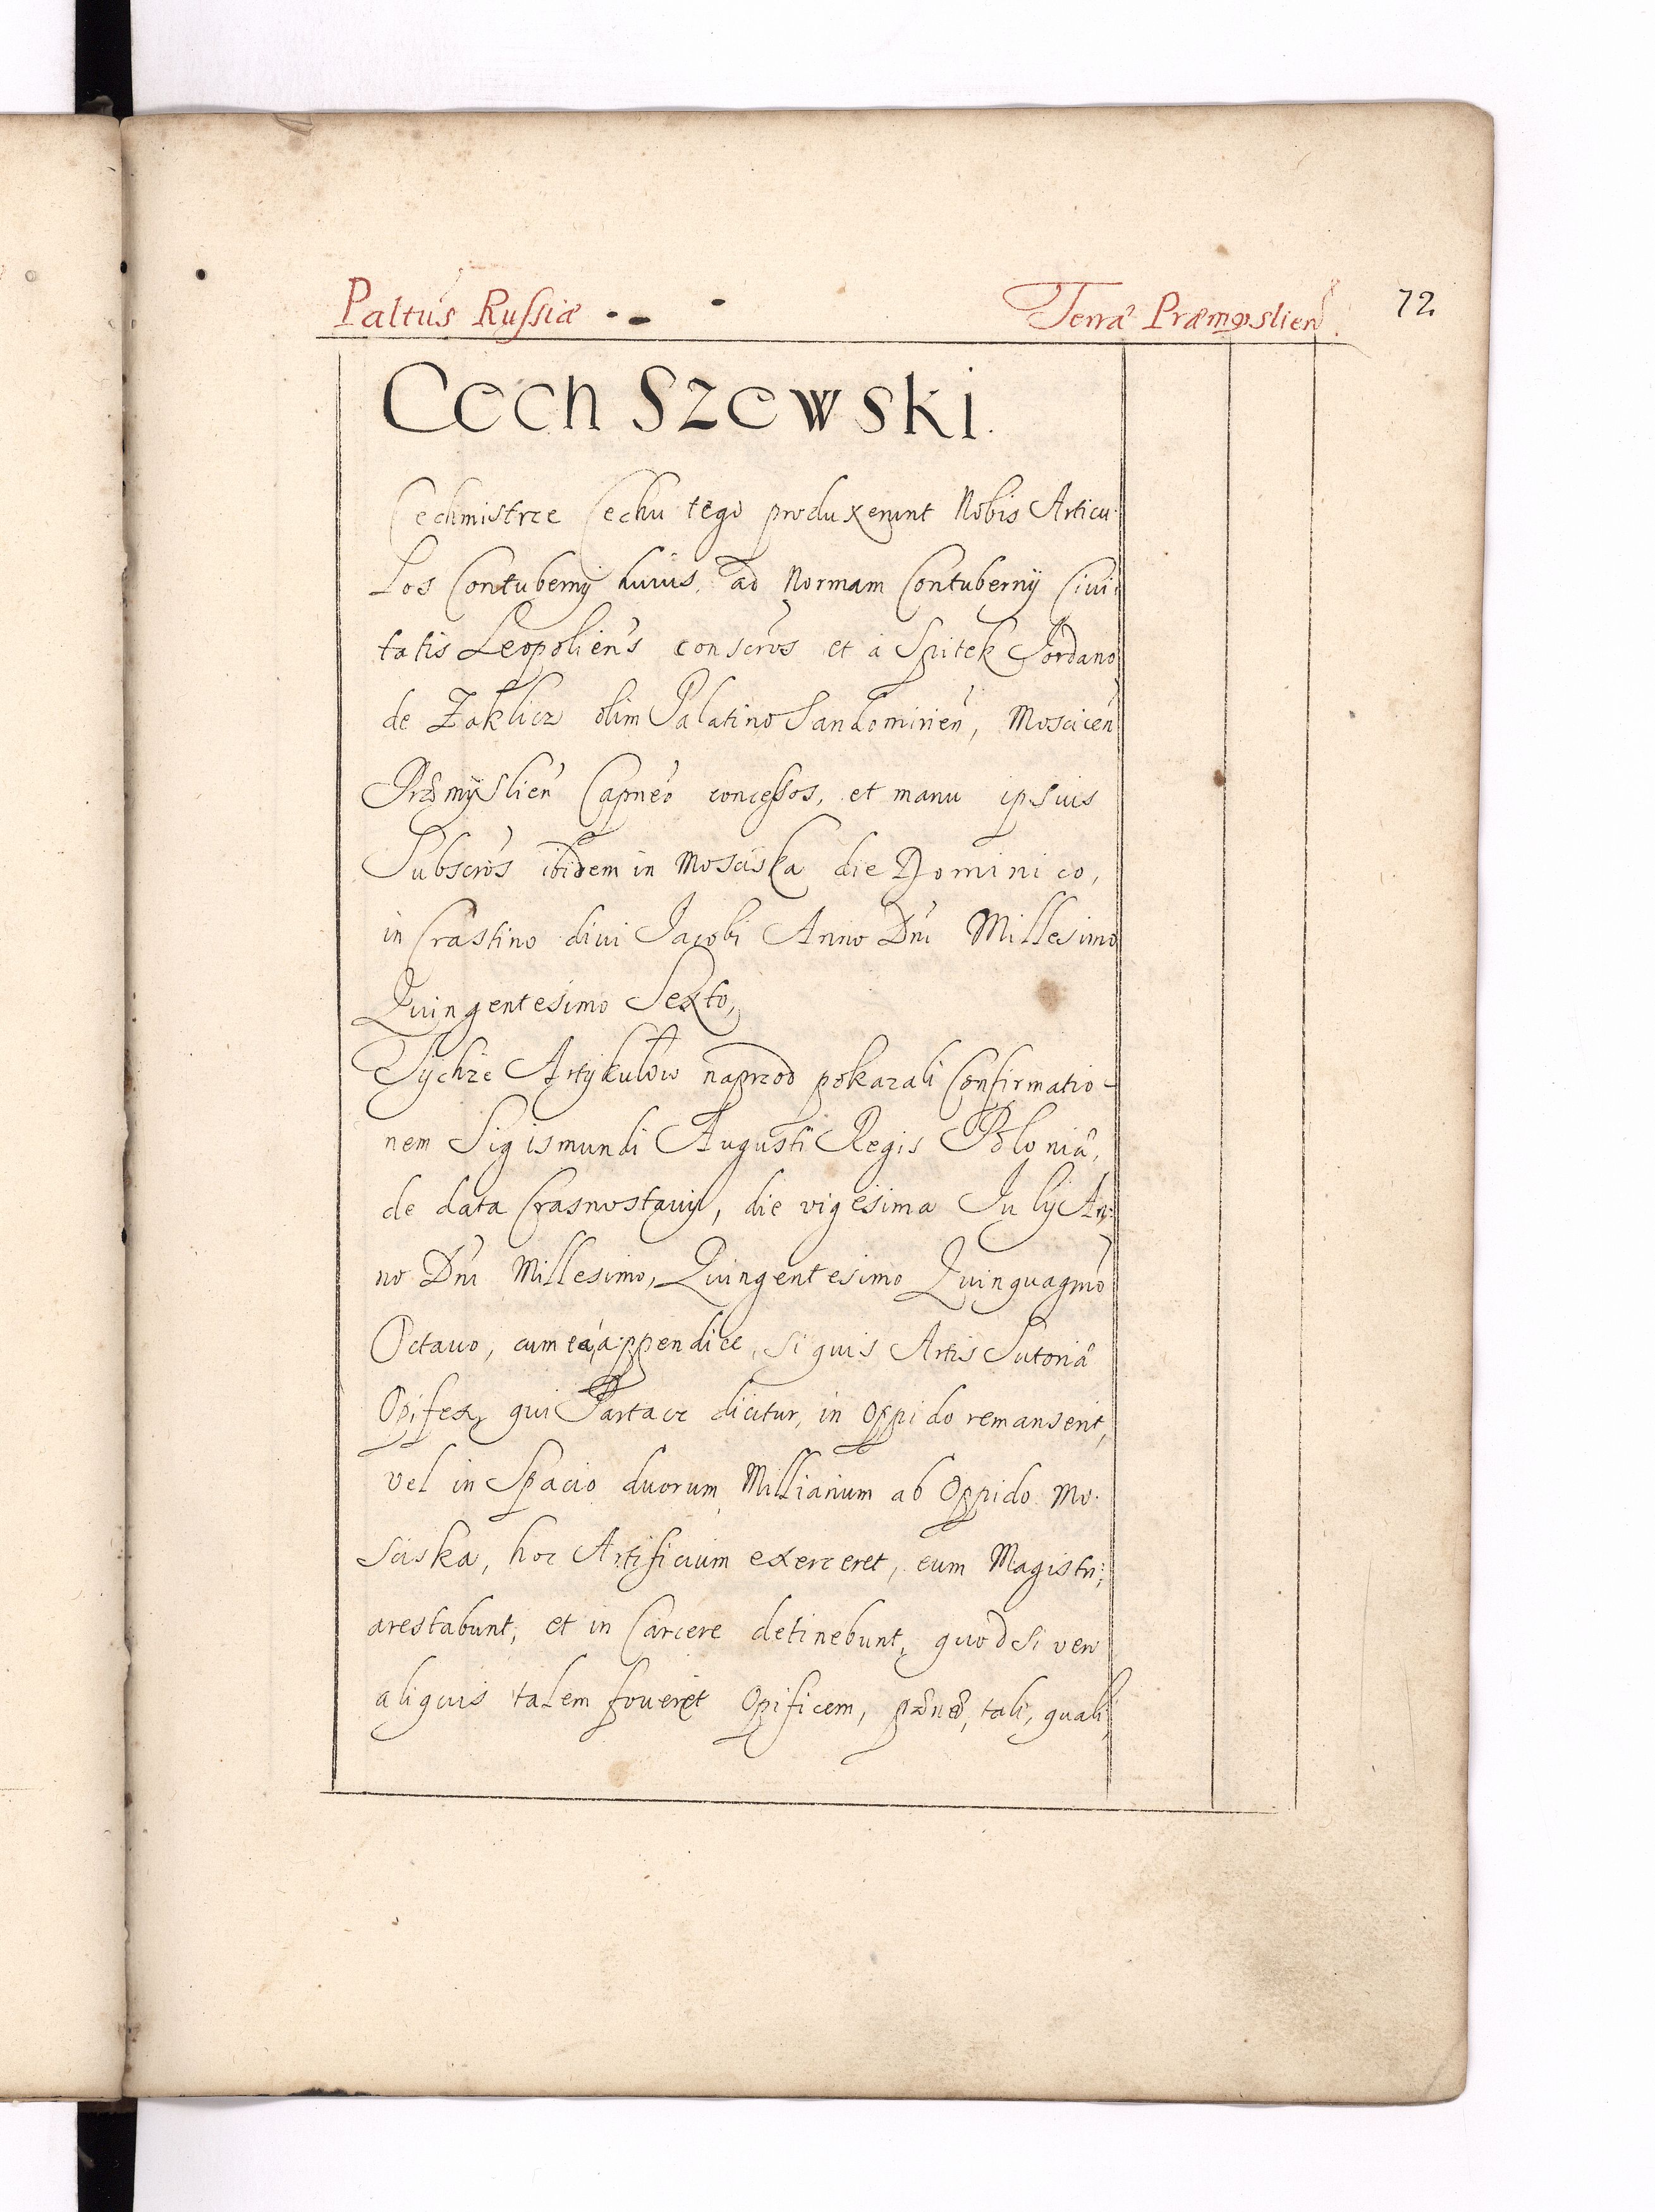 Paltus Russiæ Terræ Præmyslien 72.
Cech Szewski.
Cechmistrze Cechu tego produxerunt Nobis Articu-
los Contubernij huius, ad Normam Contubernij Civi-
tatis Leopoliens conscros et a Spitek Jordano
de Zaklicz olim Palatino Sandomirien, Moscicen
Præmyslien Capneo concessos, et manu ipsius
Subscros ibidem in Mosciska die Dominico,
in Crastino divi Jacobi Anno Dni Millesimo
Quingentesimo Sexto,
Tychże Artykułow naprzod pokazali Confirmatio-
nem Sigismundi Augusti Regis Poloniæ,
de data Crasnostaviæ, die vigesima Julij An-
no Dni Millesimo, Quingentesimo Quinquagmo
Octauo, cum ea appendice, si quis Artis Sutoriæ
Opifex, qui Partacz dicitur, in Oppido remanserit,
vel in Spacio duorum Milliarium ab Oppido Mo-
sciska, hoc Artificium exerceret, eum Magistri,
arestabunt, et in Carcere detinebunt, quod si vero
aliquis talem foveret Opificem, tali, quali